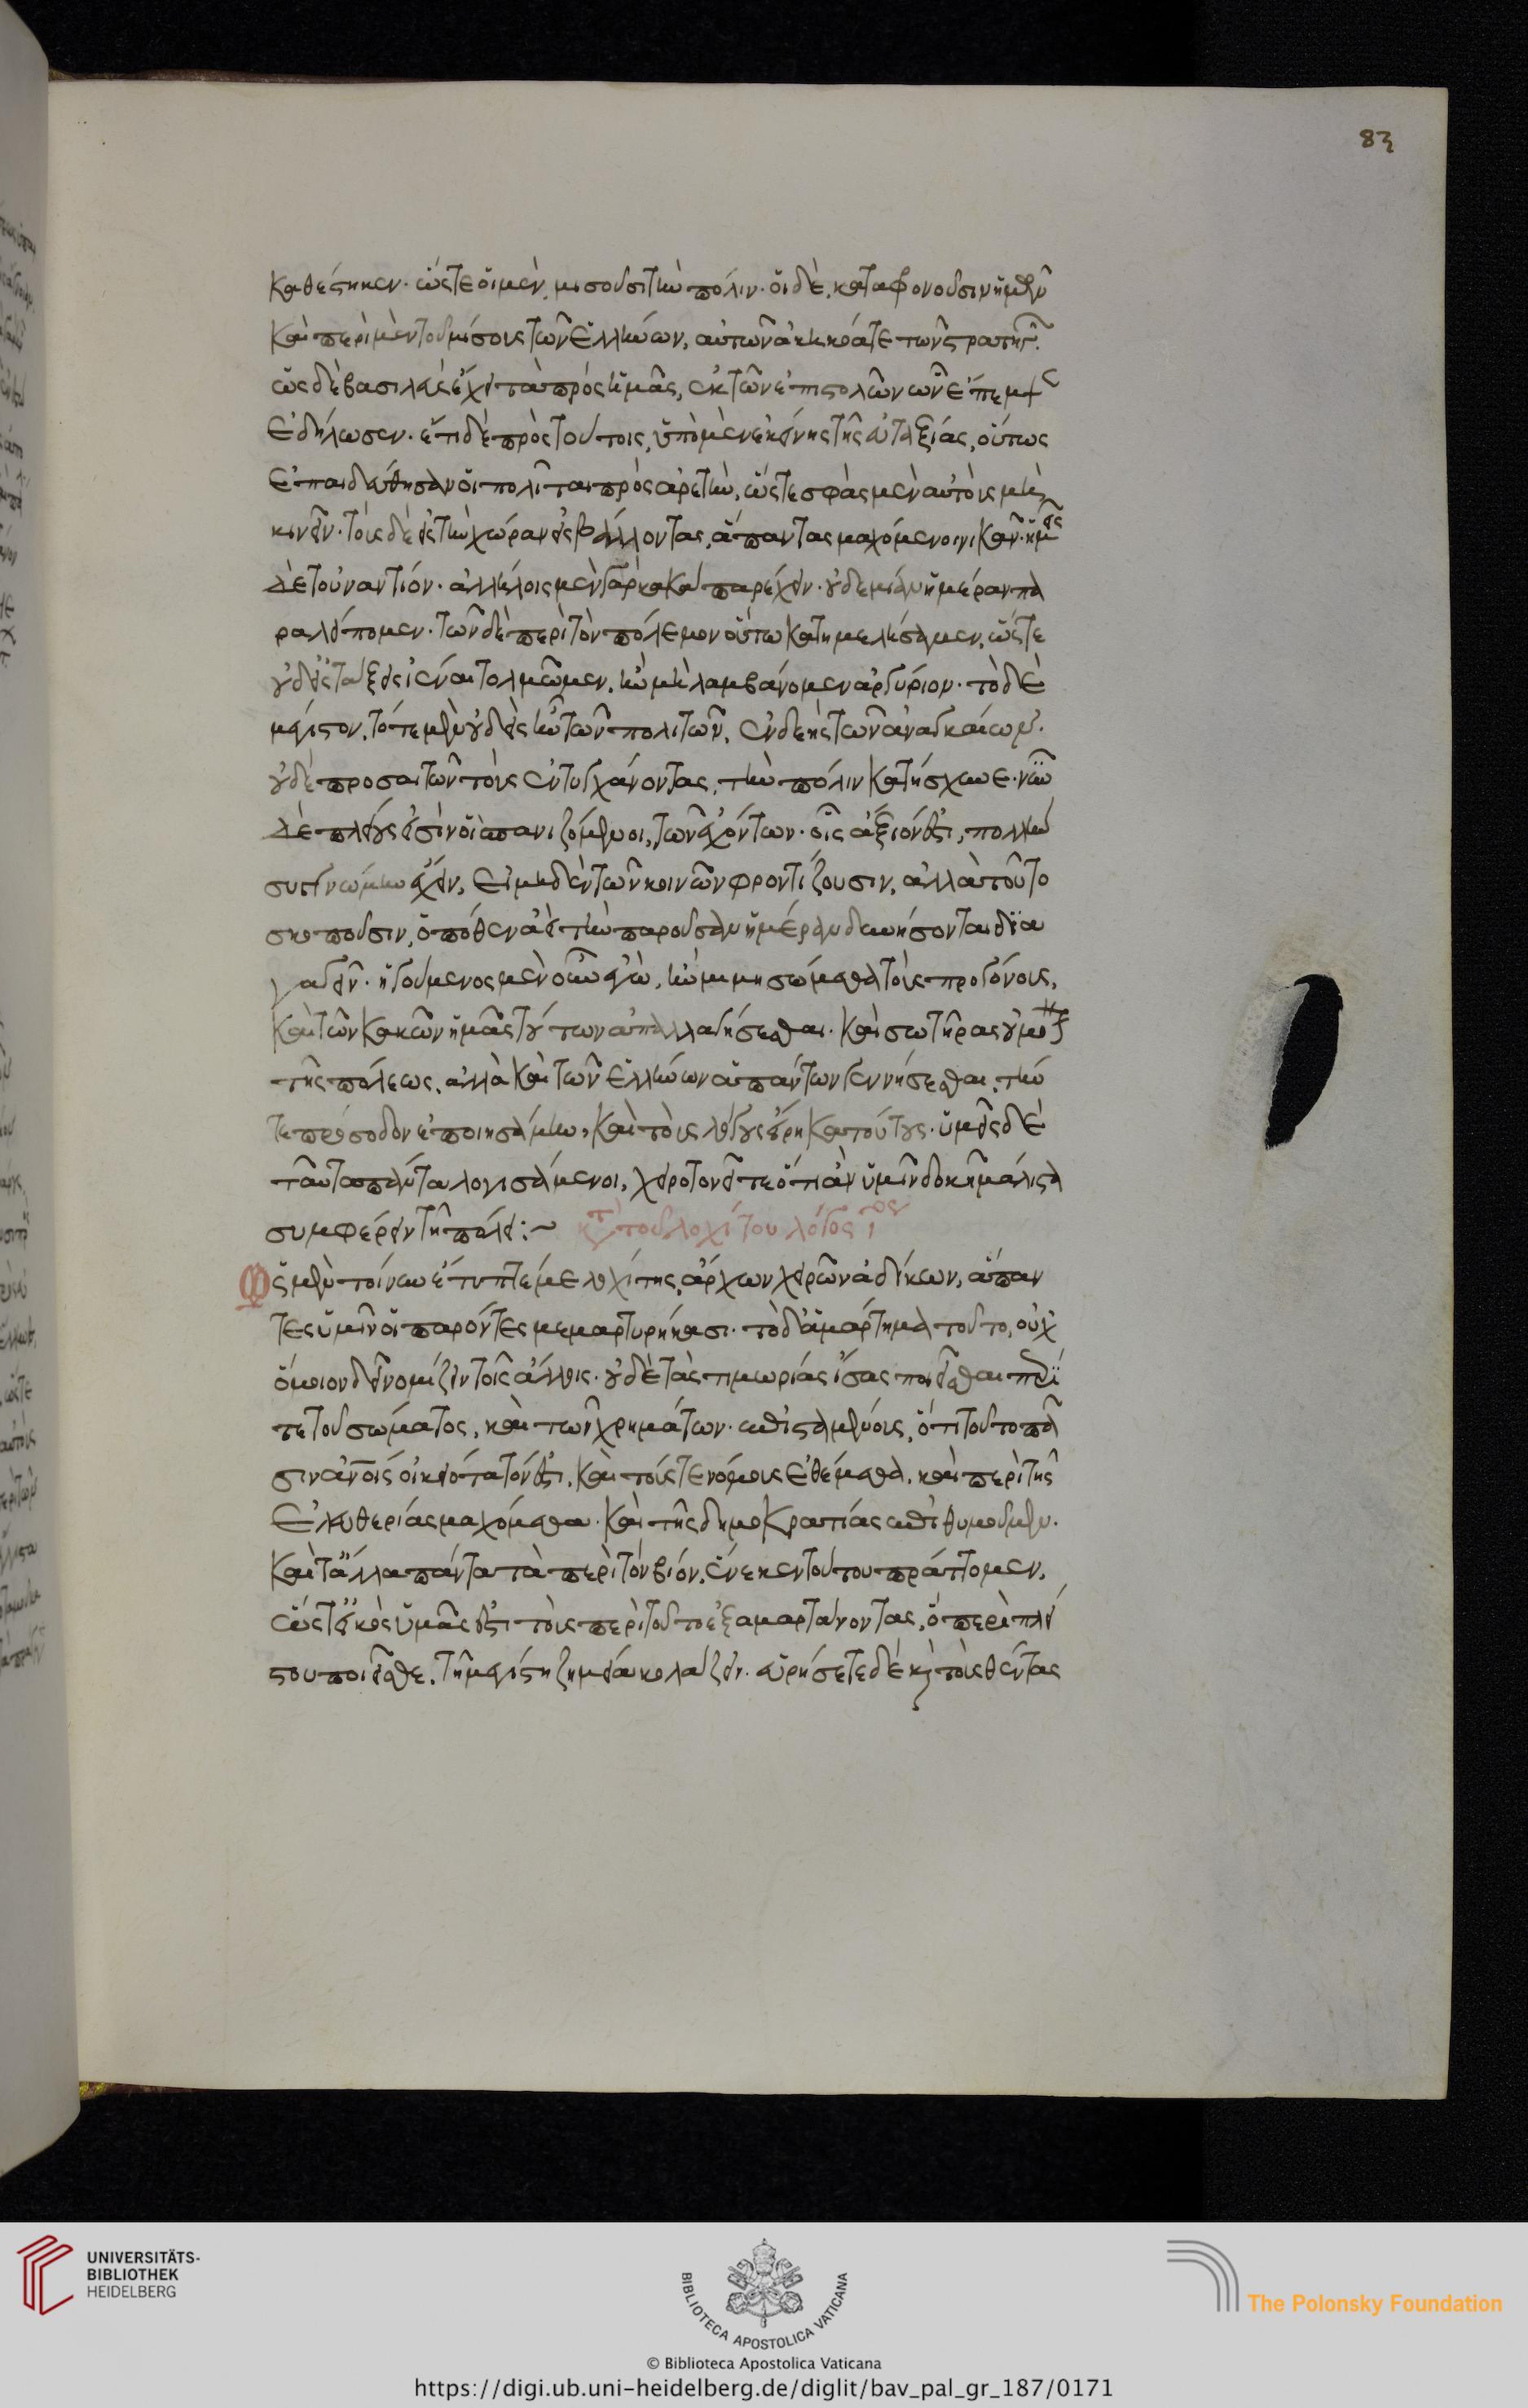 83
καθέστηκεν. ὥστε οἱ μὲν, μισοῦσι τὴν πόλιν. οἱ δὲ, καταφρονοῦσιν ἡμῶν
καὶ περὶ μὲν τοῦ μίσους τῶν ἑλλήνων, αὐτῶν ἀκηκόατε τῶν στρατηγῶν.
ὡς δὲ βασιλεὺς ἔχει τὰ πρὸς ἡμᾶς, ἐκ τῶν ἐπιστολῶν ὧν ἔπεμψεν
ἐδήλωσεν. ἔτι δὲ πρὸς τούτοις, ὑπὸ μὲν ἐκείνης τῆς εὐταξίας, οὕτως
ἐπαιδεύθησαν οἱ πολῖται πρὸς ἀρετὴν, ὥστε σφὰς μὲν αὐτοὺς μὴ
κινεῖν. τοὺς δὲ εἰς τὴν χώραν εἰσβάλλοντας, ἅπαντας μαχόμενοι νικᾶν. ἡμεῖς
δὲ τοὐναντίον. ἀλλήλοις μὲν γὰρ κακὰ παρέχειν. οὐδεμίαν ἡμέραν πα
ραλείπομεν. τῶν δὲ περὶ τὸν πόλεμον οὕτω κατημελήσαμεν, ὥστε
οὐδ' εἰς τάξεις ἰέναι τολμῶμεν, ἢν μὴ λαμβάνομεν ἀργύριον. τὸ δὲ
μέγιστον. τότε μὲν οὐδεὶς ἦν τῶν πολιτῶν, ἐνδεὴς τῶν ἀναγκαίων.
οὐδὲ προσαιτῶν τοὺς ἐντυγχάνοντας, τὴν πόλιν κατήσχυνε. νῦν
δὲ πλείους εἰσὶν οἱ σπανιζόμενοι, τῶν ἐχόντων. οἷς ἄξιόν ἐστι, πολλὴν
συγγνώμην ἔχειν, εἰ μηδὲν τῶν κοινῶν φροντίζουσιν, ἀλλὰ τοῦτο
σκοποῦσιν, ὁπόθεν ἀεὶ τὴν παροῦσαν ἡμέραν δυνήσονται διά
γαγεῖν. ἡγούμενος μὲν οὖν ἐγὼ, ἢν μιμησώμεθα τοὺς προγόνους,
καὶ τῶν κακῶν ἡμᾶς τούτων ἀπαλλαγήσεσθαι. καὶ σωτῆρας οὐ μόνον
τῆς πόλεως, ἀλλὰ καὶ τῶν ἑλλήνων ἁπάντων γεννήσεσθαι, τήν
τε πρόσοδον ἐποιησάμην, καὶ τοὺς λόγους εἴρηκα τούτους. ὑμεῖς δὲ
ταῦτα πάντα λογισάμενοι, χειροτονεῖτε ὅτι ἂν ὑμῖν δοκῇ μάλιστα
συμφέρειν τῇ πόλει:~ κατὰ τοῦ λοχίτου λόγος
Ὡς μὲν τοίνυν ἔτυπτέ με λοχίτης, ἄρχων χειρῶν ἀδίκων, ἅπαν
τες ὑμῖν οἱ παρόντες μεμαρτυρήκασι. τὸ δ' ἁμάρτημα τοῦτο, οὐχ
ὅμοιον δεῖ νομίζειν τοῖς ἄλλοις. οὐδὲ τὰς τιμωρίας ἴσας ποιεῖσθαι περί
τε τοῦ σώματος, καὶ τῶν χρημάτων. ἐπισταμένους, ὅτι τοῦτο πᾶ
σιν ἀνοις οἰκειότατόν ἐστι, καὶ τούς τε νόμους ἐθέμεθα, καὶ περὶ τῆς
ἐλευθερίας μαχόμεθα. καὶ τῆς δημοκρατίας ἐπιθυμοῦμεν.
καὶ τἄλλα πάντα τὰ περὶ τὸν βίον, ἕνεκεν τούτου πράττομεν.
ὥστ' εἰκὸς ὑμᾶς ἐστι τοὺς περὶ τοῦτο ἐξαμαρτάνοντας, ὃ περὶ πλεί
στου ποιεῖσθε, τῇ μεγίστῃ ζημίᾳ κολάζειν. εὑρήσετε δὲ καὶ τοὺς θέντας
UNIVERSITÄTS-
BIBLIOTHEK
HEIDELBERG
BIBLIOTECA APOSTOLICA VATICANA
The Polonsky Foundation
© Biblioteca Apostolica Vaticana
https://digi.ub.uni-heidelberg.de/diglit/bav_pal_gr_187/0171